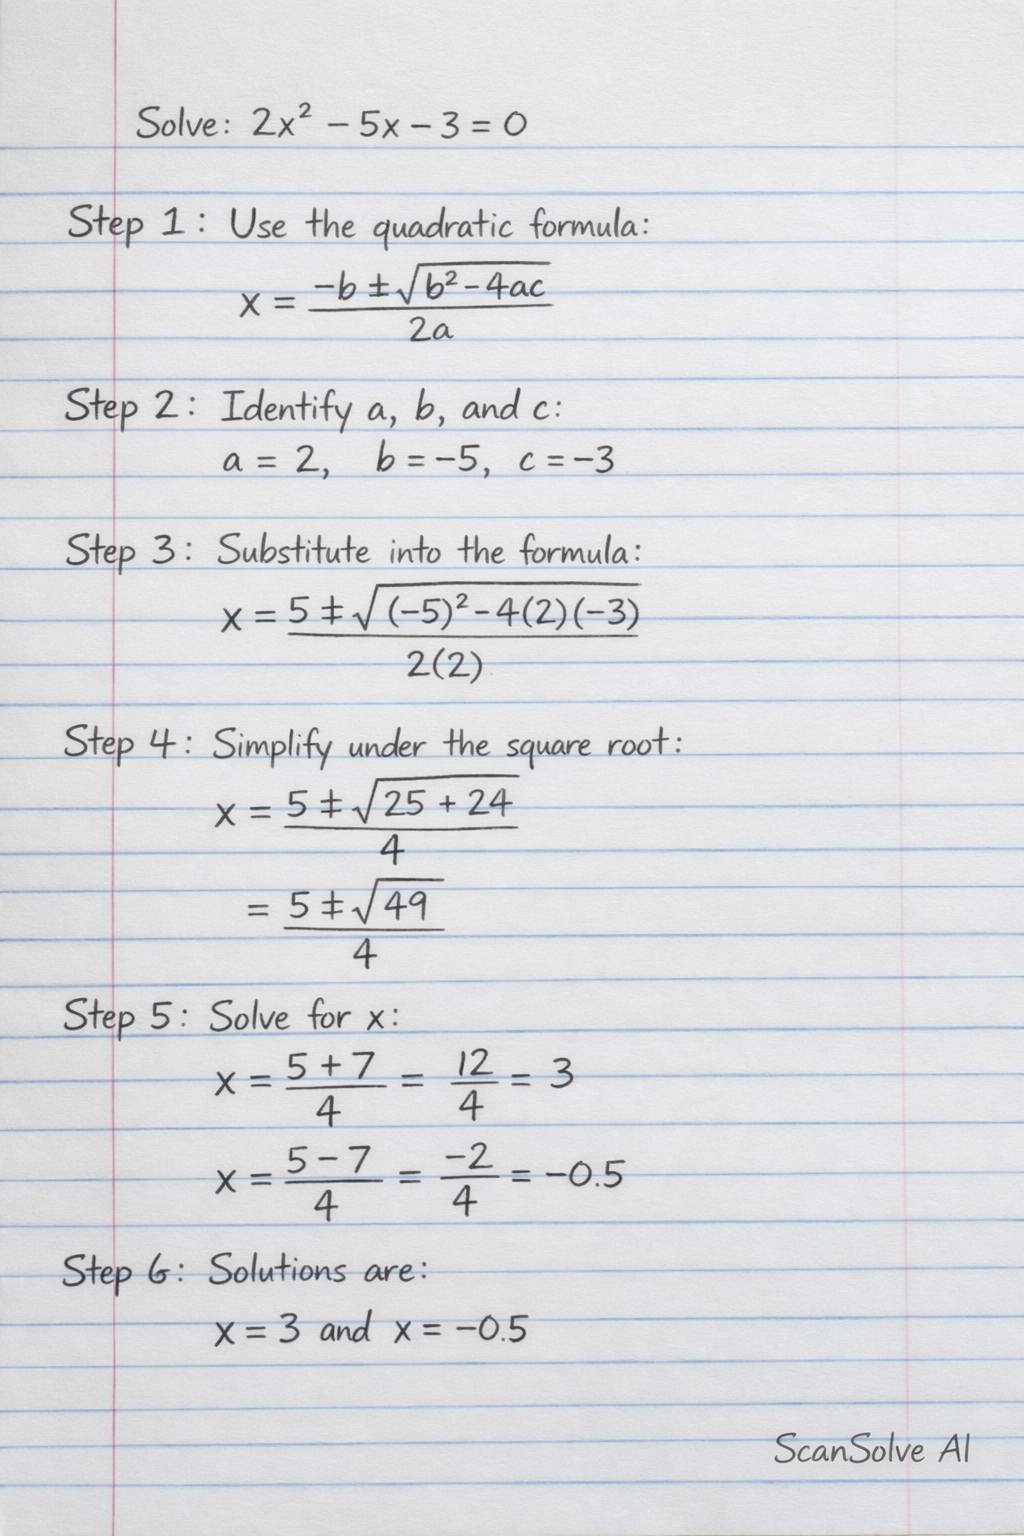 Solve: 2x² − 5x − 3 = 0
Step 1: Use the quadratic formula:
x = (−b ± √(b² − 4ac)) / 2a
Step 2: Identify a, b, and c:
a = 2, b = −5, c = −3
Step 3: Substitute into the formula:
x = (5 ± √((−5)² − 4(2)(−3))) / 2(2)
Step 4: Simplify under the square root:
x = (5 ± √(25 + 24)) / 4
= (5 ± √49) / 4
Step 5: Solve for x:
x = (5 + 7) / 4 = 12 / 4 = 3
x = (5 − 7) / 4 = −2 / 4 = −0.5
Step 6: Solutions are:
x = 3 and x = −0.5
ScanSolve AI